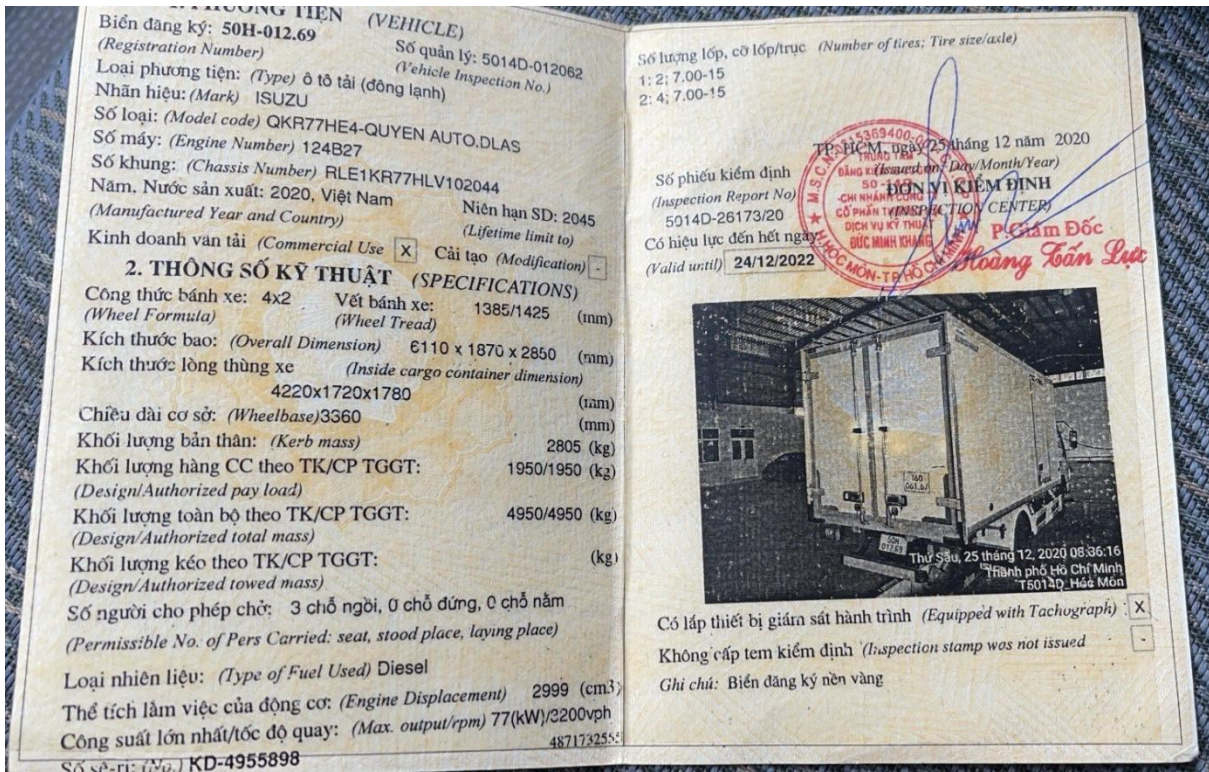 1. PHƯƠNG TIỆN (VEHICLE)
Biển đăng ký: 50H-012.69
(Registration Number)
Số quản lý: 5014D-012062
(Vehicle Inspection No.)
Loại phương tiện: (Type) ô tô tải (đông lạnh)
Nhãn hiệu: (Mark) ISUZU
Số loại: (Model code) QKR77HE4-QUYEN AUTO.DLAS
Số máy: (Engine Number) 124B27
Số khung: (Chassis Number) RLE1KR77HLV102044
Năm, Nước sản xuất: 2020, Việt Nam
(Manufactured Year and Country)
Niên hạn SD: 2045
(Lifetime limit to)
Kinh doanh vận tải (Commercial Use X Cải tạo (Modification) -
2. THÔNG SỐ KỸ THUẬT (SPECIFICATIONS)
Công thức bánh xe: 4x2 Vết bánh xe: 1385/1425 (mm)
(Wheel Formula) (Wheel Tread)
Kích thước bao: (Overall Dimension) 6110 x 1870 x 2850 (mm)
Kích thước lòng thùng xe (Inside cargo container dimension)
4220x1720x1780 (mm)
Chiều dài cơ sở: (Wheelbase)3360 (mm)
Khối lượng bản thân: (Kerb mass) 2805 (kg)
Khối lượng hàng CC theo TK/CP TGGT: 1950/1950 (kg)
(Design/Authorized pay load)
Khối lượng toàn bộ theo TK/CP TGGT: 4950/4950 (kg)
(Design/Authorized total mass)
Khối lượng kéo theo TK/CP TGGT: (kg)
(Design/Authorized towed mass)
Số người cho phép chở: 3 chỗ ngồi, 0 chỗ đứng, 0 chỗ nằm
(Permissible No. of Pers Carried: seat, stood place, laying place)
Loại nhiên liệu: (Type of Fuel Used) Diesel
Thể tích làm việc của động cơ: (Engine Displacement) 2999 (cm3)
Công suất lớn nhất/tốc độ quay: (Max. output/rpm) 77(kW)/3200vph
487173255
Số sê-ri: (No.) KD-4955898
Số lượng lốp, cỡ lốp/trục (Number of tires; Tire size/axle)
1; 2; 7.00-15
2: 4; 7.00-15
TP. HCM, ngày 25 tháng 12 năm 2020
(Issued on: Day/Month/Year)
Số phiếu kiểm định
(Inspection Report No)
5014D-26173/20
ĐƠN VỊ KIỂM ĐỊNH
(INSPECTION CENTER)
Có hiệu lực đến hết ngày
(Valid until) 24/12/2022
TRUNG TÂM
CHI NHÁNH CÔNG
CỔ PHẦN
DỊCH VỤ KỸ THUẬT
ĐỨC MINH KHANG
H.HÓC MÔN-TP HỒ CHÍ MINH
P.Giám Đốc
Hoàng Tấn Lực
50H
012.69
Thứ Sáu, 25 tháng 12, 2020 08:36:16
Thành phố Hồ Chí Minh
T5014D_Hóc Môn
Có lắp thiết bị giám sát hành trình (Equipped with Tachograph) X
Không cấp tem kiểm định (Inspection stamp was not issued -
Ghi chú: Biển đăng ký nền vàng